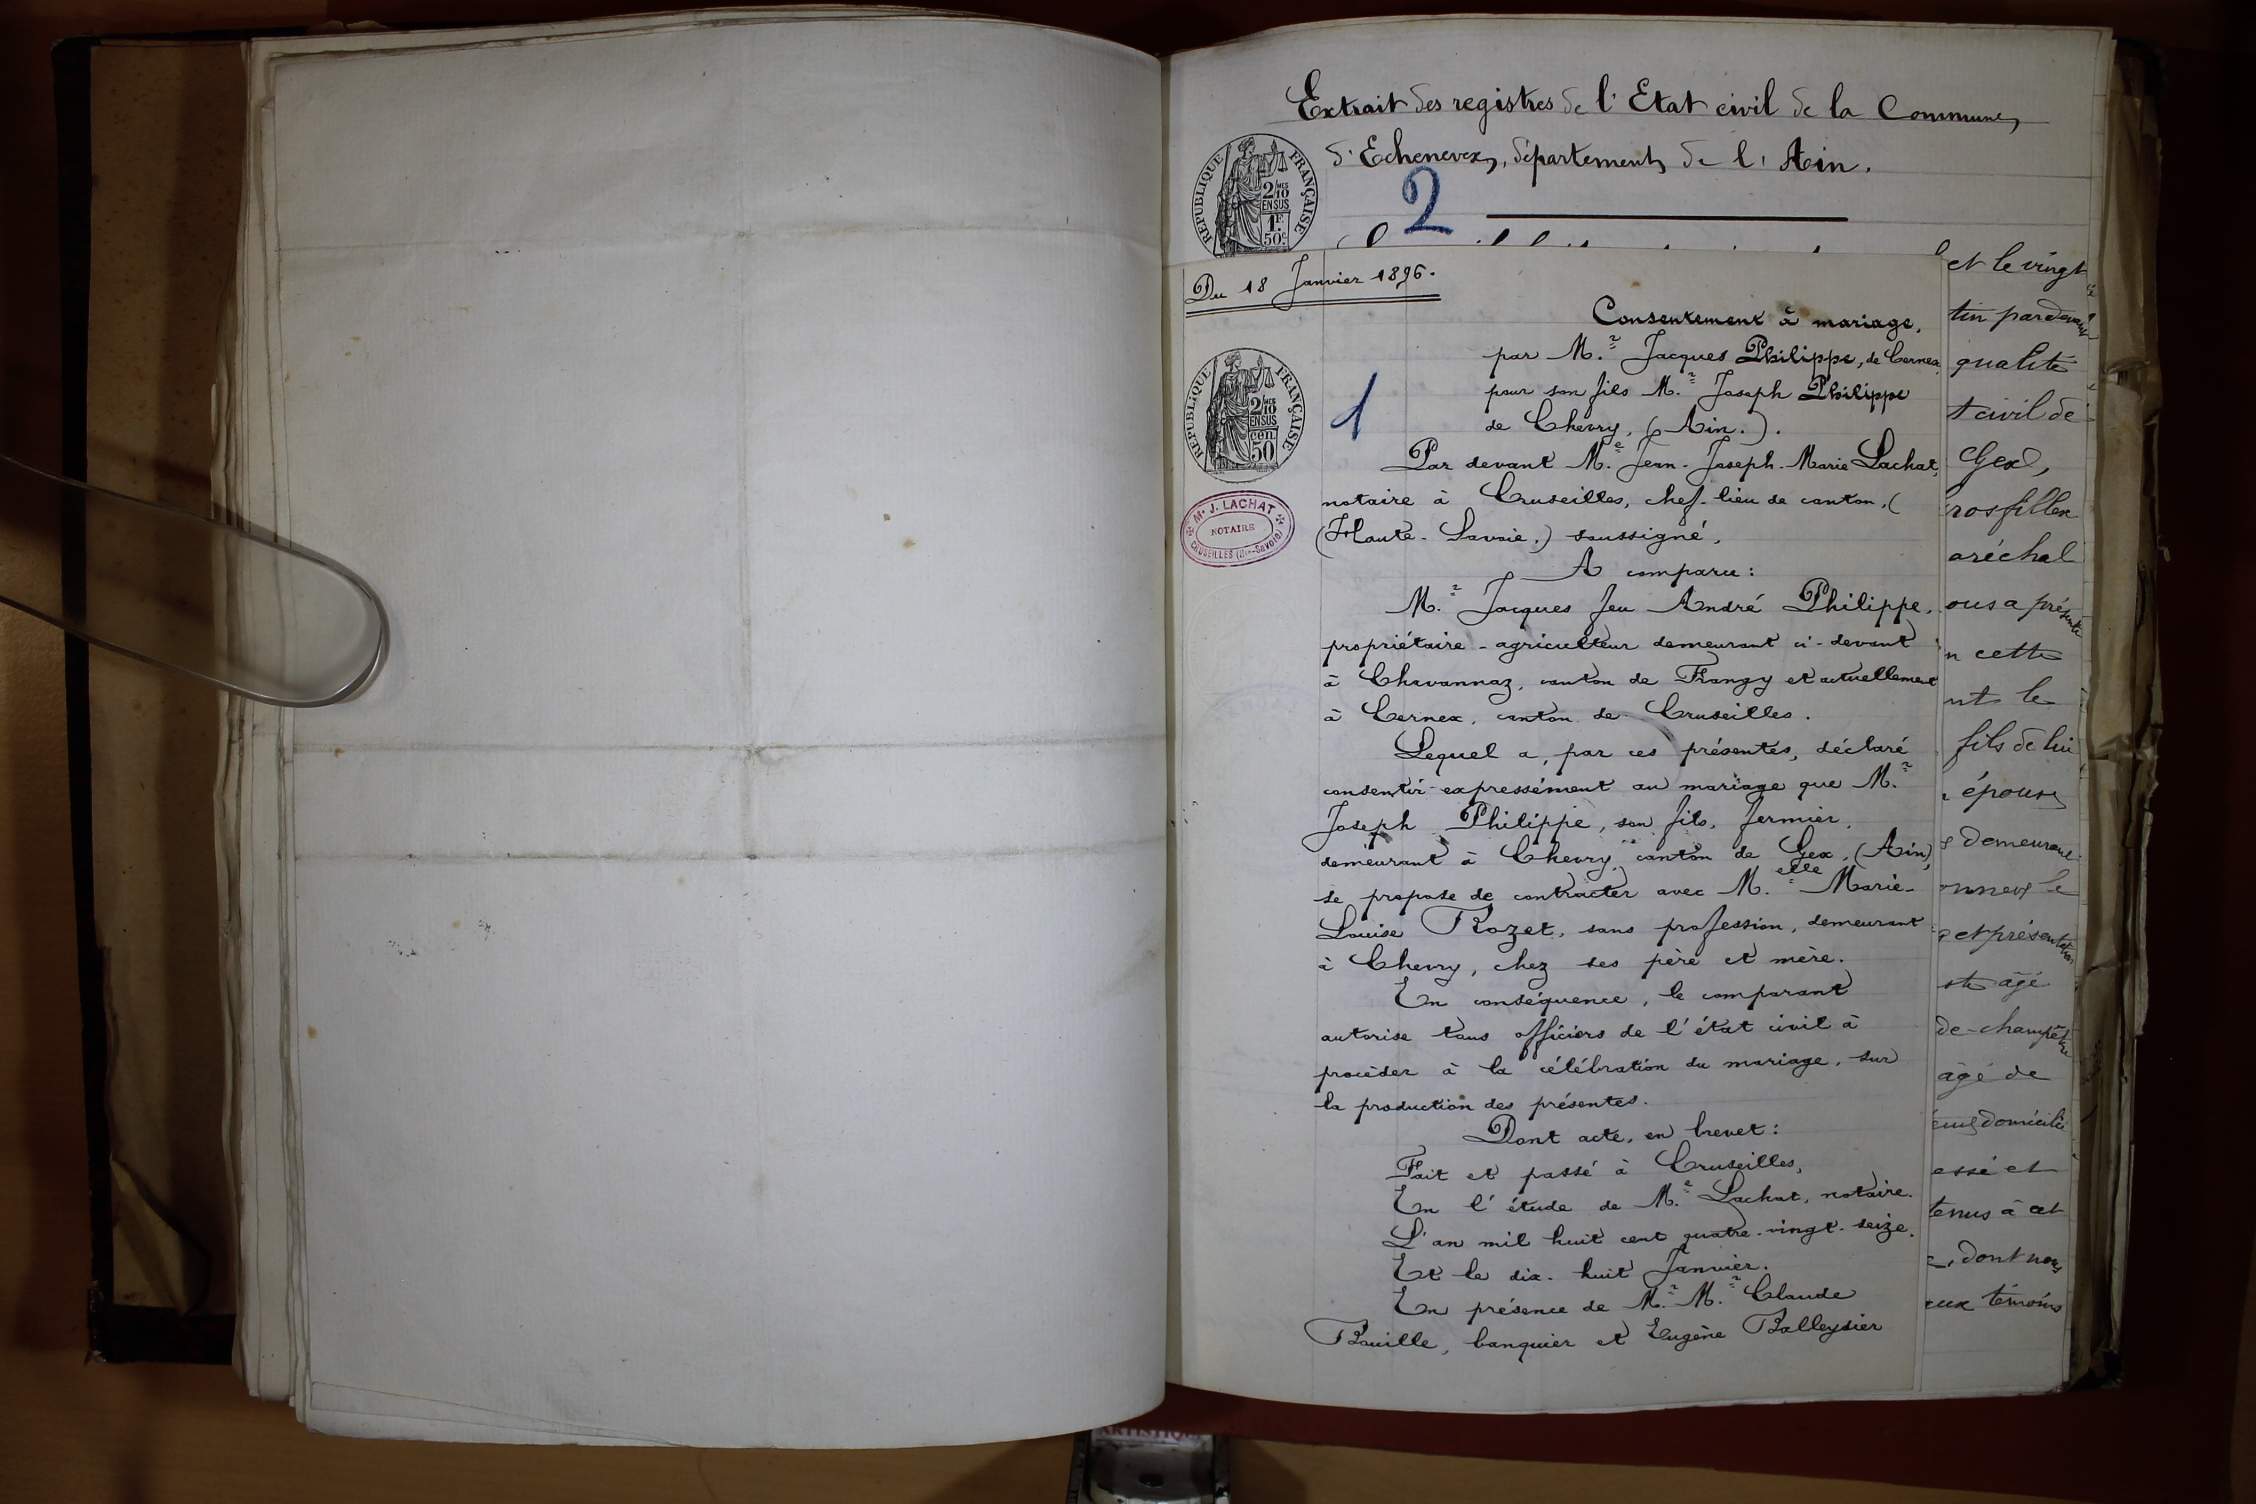 Extrait des registres de l'Etat civil de la Commune
d'Echenevex, département de l'Ain.
2
RÉPUBLIQUE FRANÇAISE
2/10 MES
EN SUS
1 F.
50 c.
Du 18 Janvier 1896.
Consentement à mariage,
par M.r Jacques Philippe, de Cernex
pour son fils M.r Joseph Philippe
de Chevry, (Ain.).
1
RÉPUBLIQUE FRANÇAISE
2/10 MES
EN SUS
cen
50
Me J. LACHAT
NOTAIRE
CRUSEILLES (Hte-Savoie)
Par devant M.e Jean-Joseph-Marie Lachat,
notaire à Cruseilles, chef-lieu de canton, (
(Haute-Savoie,) soussigné,
A comparu:
M.r Jacques feu André Philippe,
propriétaire-agriculteur demeurant ci-devant
à Chavannaz, canton de Frangy et actuellement
à Cernex, canton de Cruseilles.
Lequel a, par ces présentes, déclaré
consentir expressément au mariage que M.r
Joseph Philippe, son fils, fermier,
demeurant à Chevry, canton de Gex, (Ain),
se propose de contracter avec M.elle Marie-
Louise Rozet, sans profession, demeurant
à Chevry, chez ses père et mère.
En conséquence, le comparant
autorise tous officiers de l'état civil à
procéder à la célébration du mariage, sur
la production des présentes.
Dont acte, en brevet:
Fait et passé à Cruseilles,
En l'étude de M.e Lachat, notaire.
L'an mil huit cent quatre-vingt-seize.
Et le dix-huit Janvier.
En présence de M.r M.r Claude
Bouille, banquier et Eugène Balleysier
et le vingt
tin pardevant
qualité
t civil de
Gex,
rosfillex
aréchal
ous a présenté
n cette
nt le
fils de lui
épouse
demeurant
onnex le
et présentation
ste âgé
de-champêtre
âgé de
eux domiciliés
essé et
tenus à cet
, dont nous
eux témoins